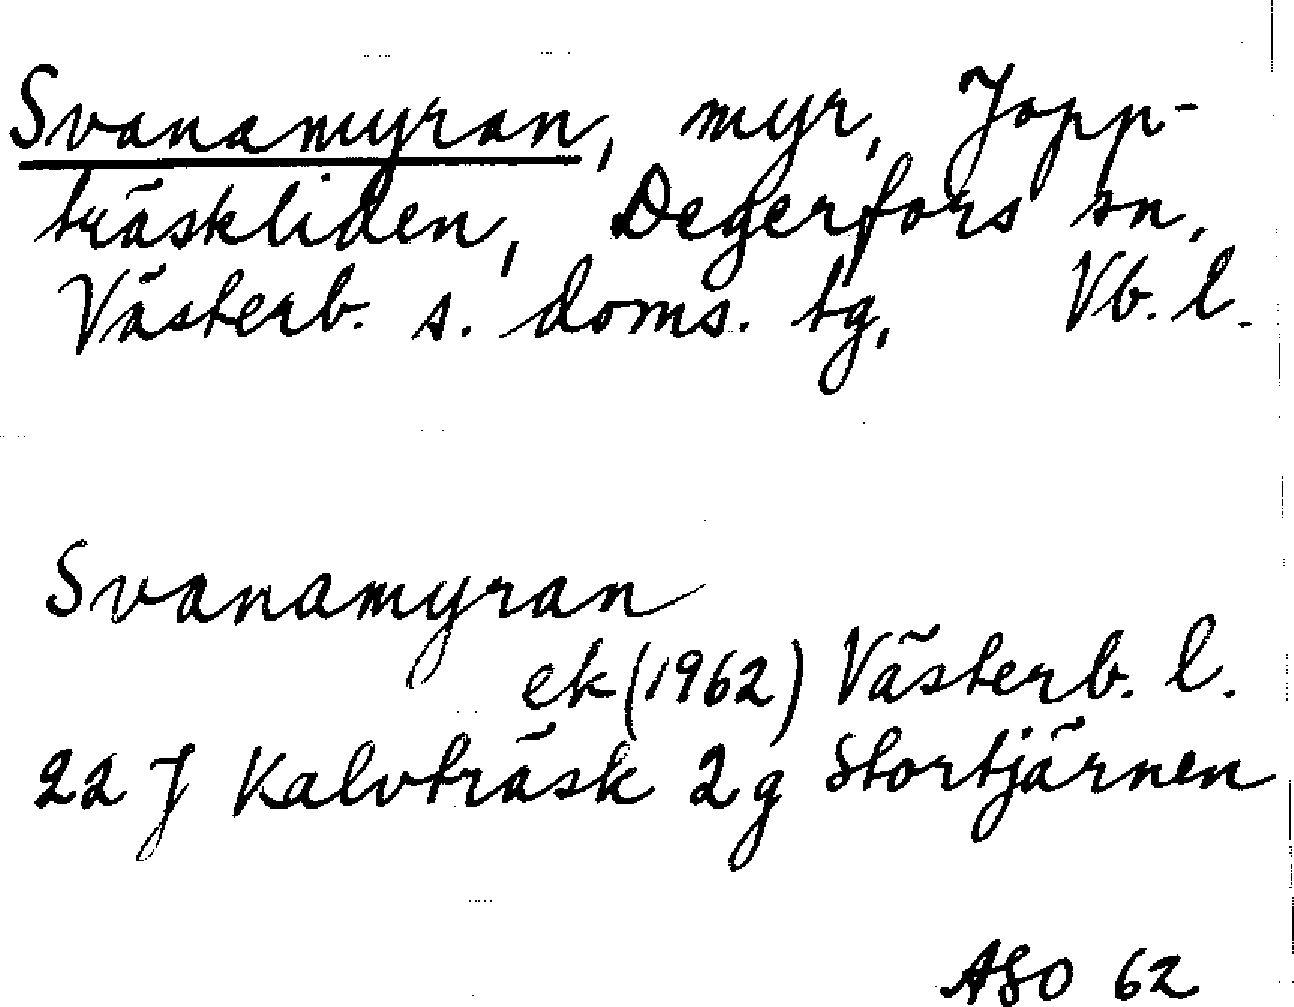 Svanamyran, myr, Jopp-
träskliden, Degerfors sn,
Västerb. s. doms. tg, Vb. l.
Svanamyran
ek (1962) Västerb. l.
22 J Kalvträsk 2 g Stortjärnen
ASO 62